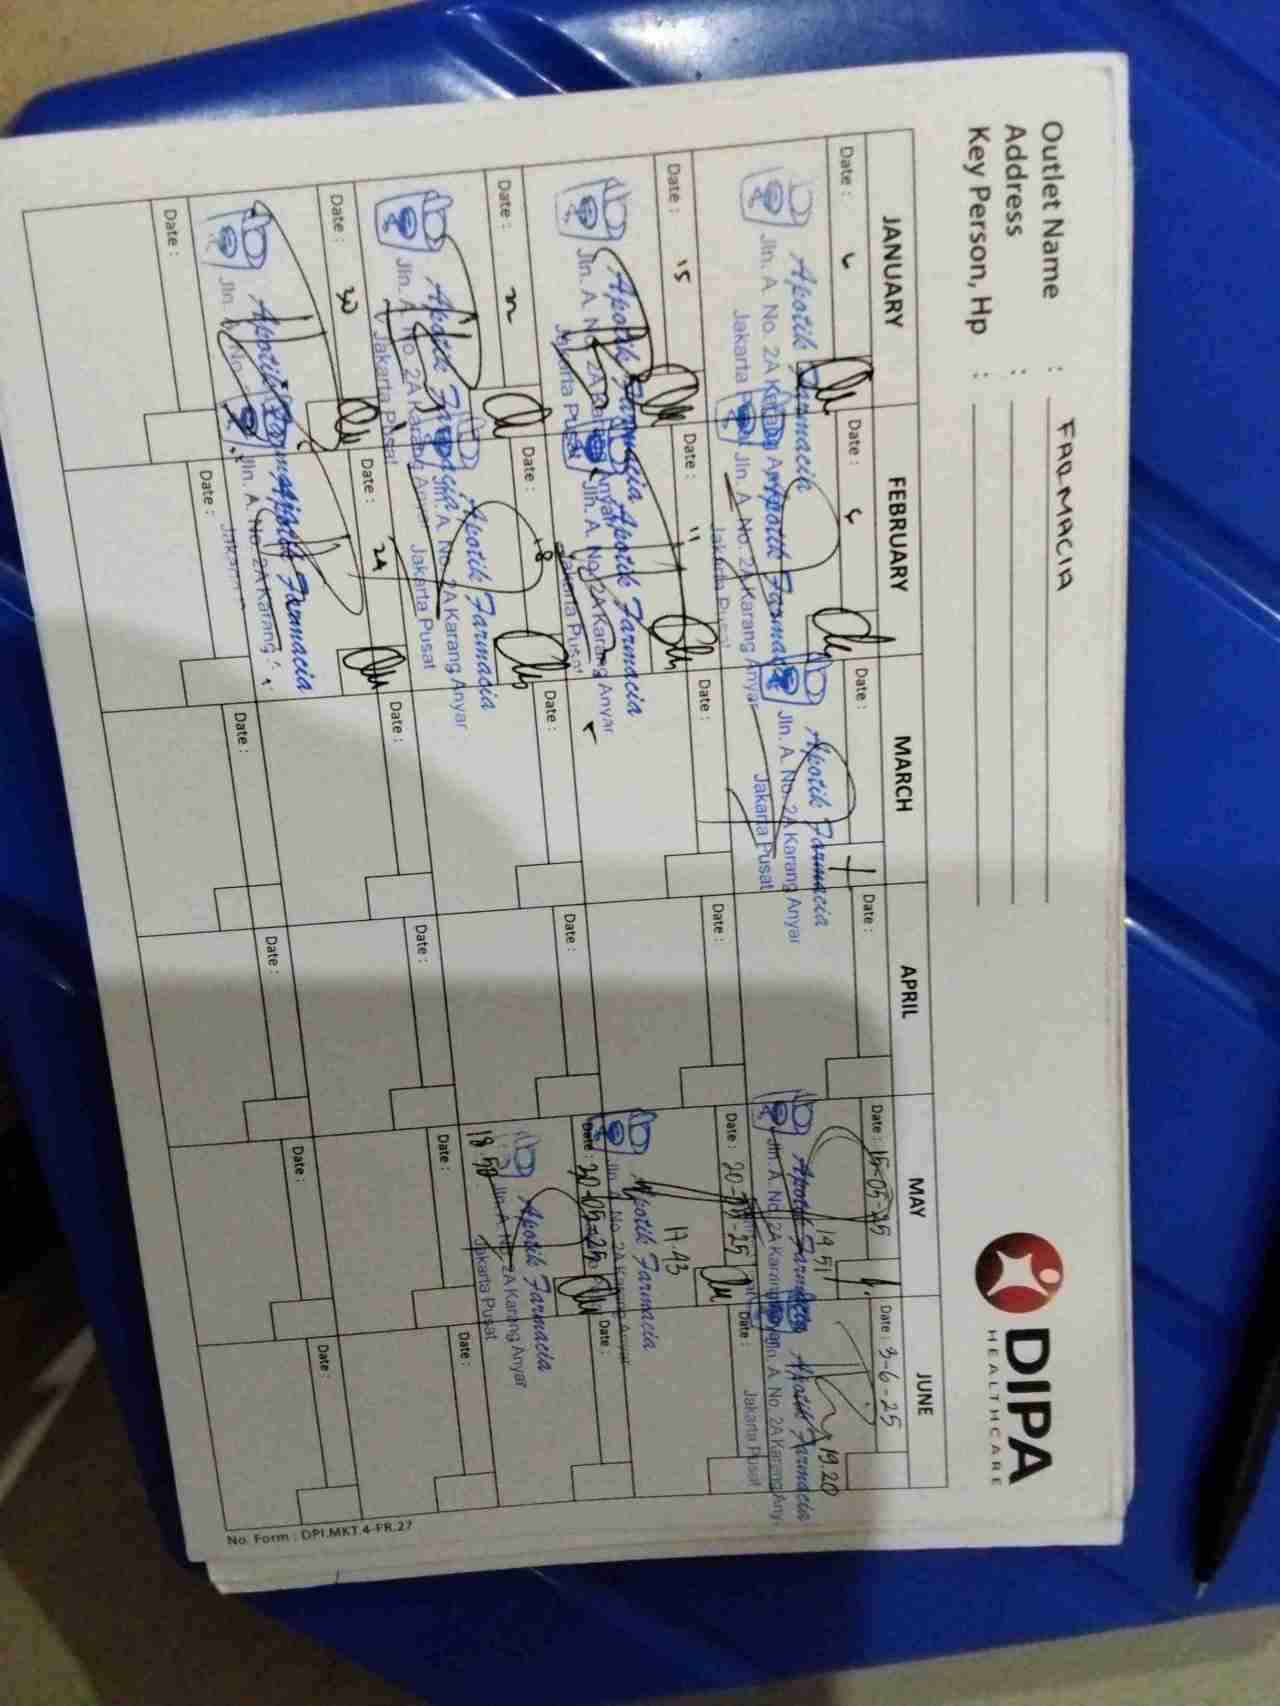 Outlet Name : FARMACIA
Address :
Key Person, Hp :
DIPA
HEALTHCARE
JANUARY FEBRUARY MARCH APRIL MAY JUNE
Date : Date : Date : Date : Date : 15-05-25 Date : 3-6-25
14.51 19.20
Apotik Farmacia Apotik Farmacia Apotik Farmacia Apotik Farmacia Apotik Farmacia
Jln. A. No. 2A Karang Anyar Jln. A. No. 2A Karang Anyar Jln. A. No. 2A Karang Anyar Jln. A. No. 2A Karang Jln. A. No. 2A Karang Any
Jakarta Pusat Jakarta Pusat Jakarta Pusat Jakarta Pusat
Date : 15 Date : 11 Date : Date : Date : 20-05-25 Date :
17.43
Apotik Farmacia Apotik Farmacia Apotik Farmacia
Jln. A. No. 2A Karang Anyar Jln. A. No. 2A Karang Anyar Jln. No. 2A Karang Anyar
Jakarta Pusat Jakarta Pusat
Date : Date : 18 Date : Date : Date : 20-05-25 Date :
18.50
Apotik Farmacia Apotik Farmacia Apotik Farmacia
Jln. A. No. 2A Karang Anyar Jln. A. No. 2A Karang Anyar Jln. A. No. 2A Karang Anyar
Jakarta Pusat Jakarta Pusat Jakarta Pusat
Date : 30 Date : 24 Date : Date : Date : Date :
Apotik Farmacia Apotik Farmacia
Jln. No. Jln. A. No. 2A Karang
Date : Date : Date : Date : Date : Date :
No. Form : DPI.MKT.4-FR.27